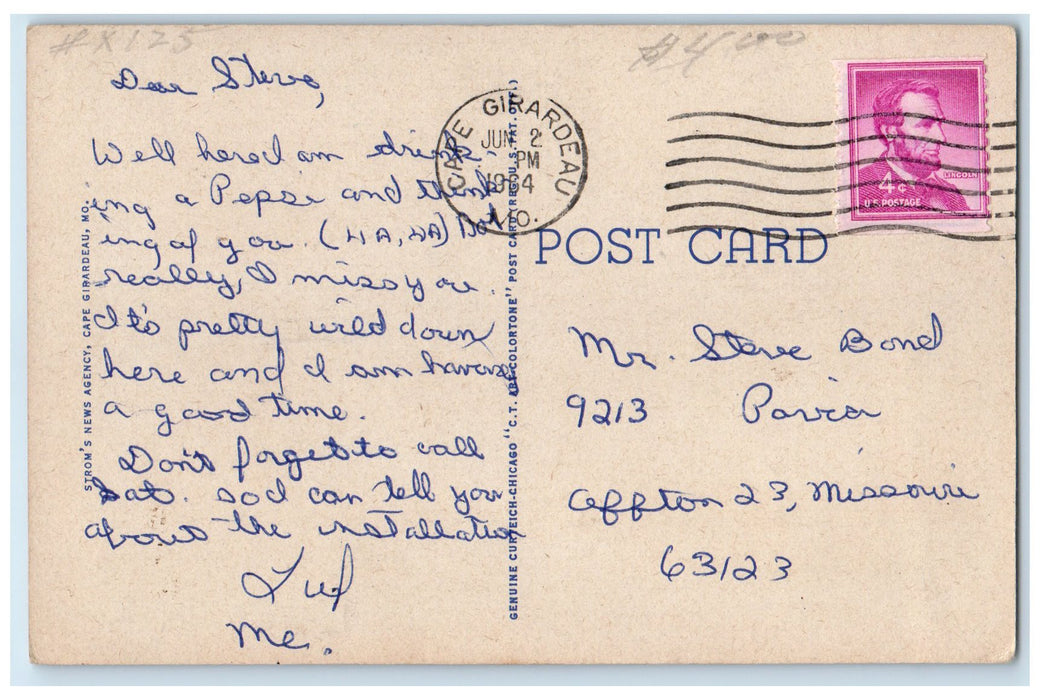 #X125
$4.00
Dear Steve,
Well here I am drink-
ing a Pepsi and think-
ing of you. (HA, HA) But
really, I miss you.
It's pretty wild down
here and I am having
a good time.
Don't forget to call
Sat. so I can tell you
about the installation
Luv
Me.
STROM'S NEWS AGENCY, CAPE GIRARDEAU, MO.
GENUINE CURTEICH-CHICAGO "C.T. ART-COLORTONE" POST CARD (REG. U.S. PAT. OFF.)
CAPE GIRARDEAU
JUN 2
PM
1964
MO.
LINCOLN
4¢
U.S. POSTAGE
POST CARD
Mr. Steve Bond
9213
Affton 23, Missouri
63123